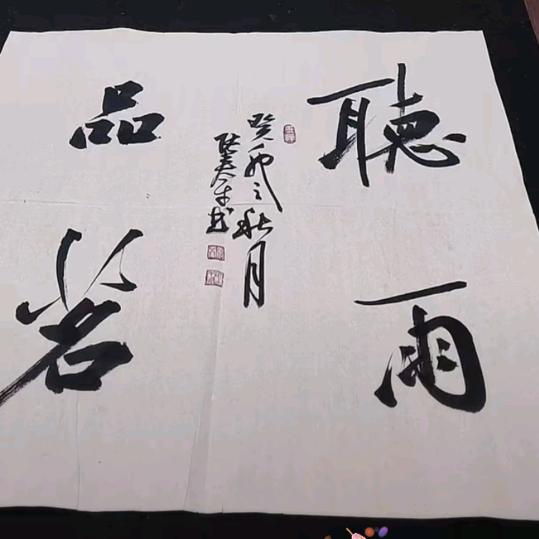 聽雨
癸卯之秋月
品茗